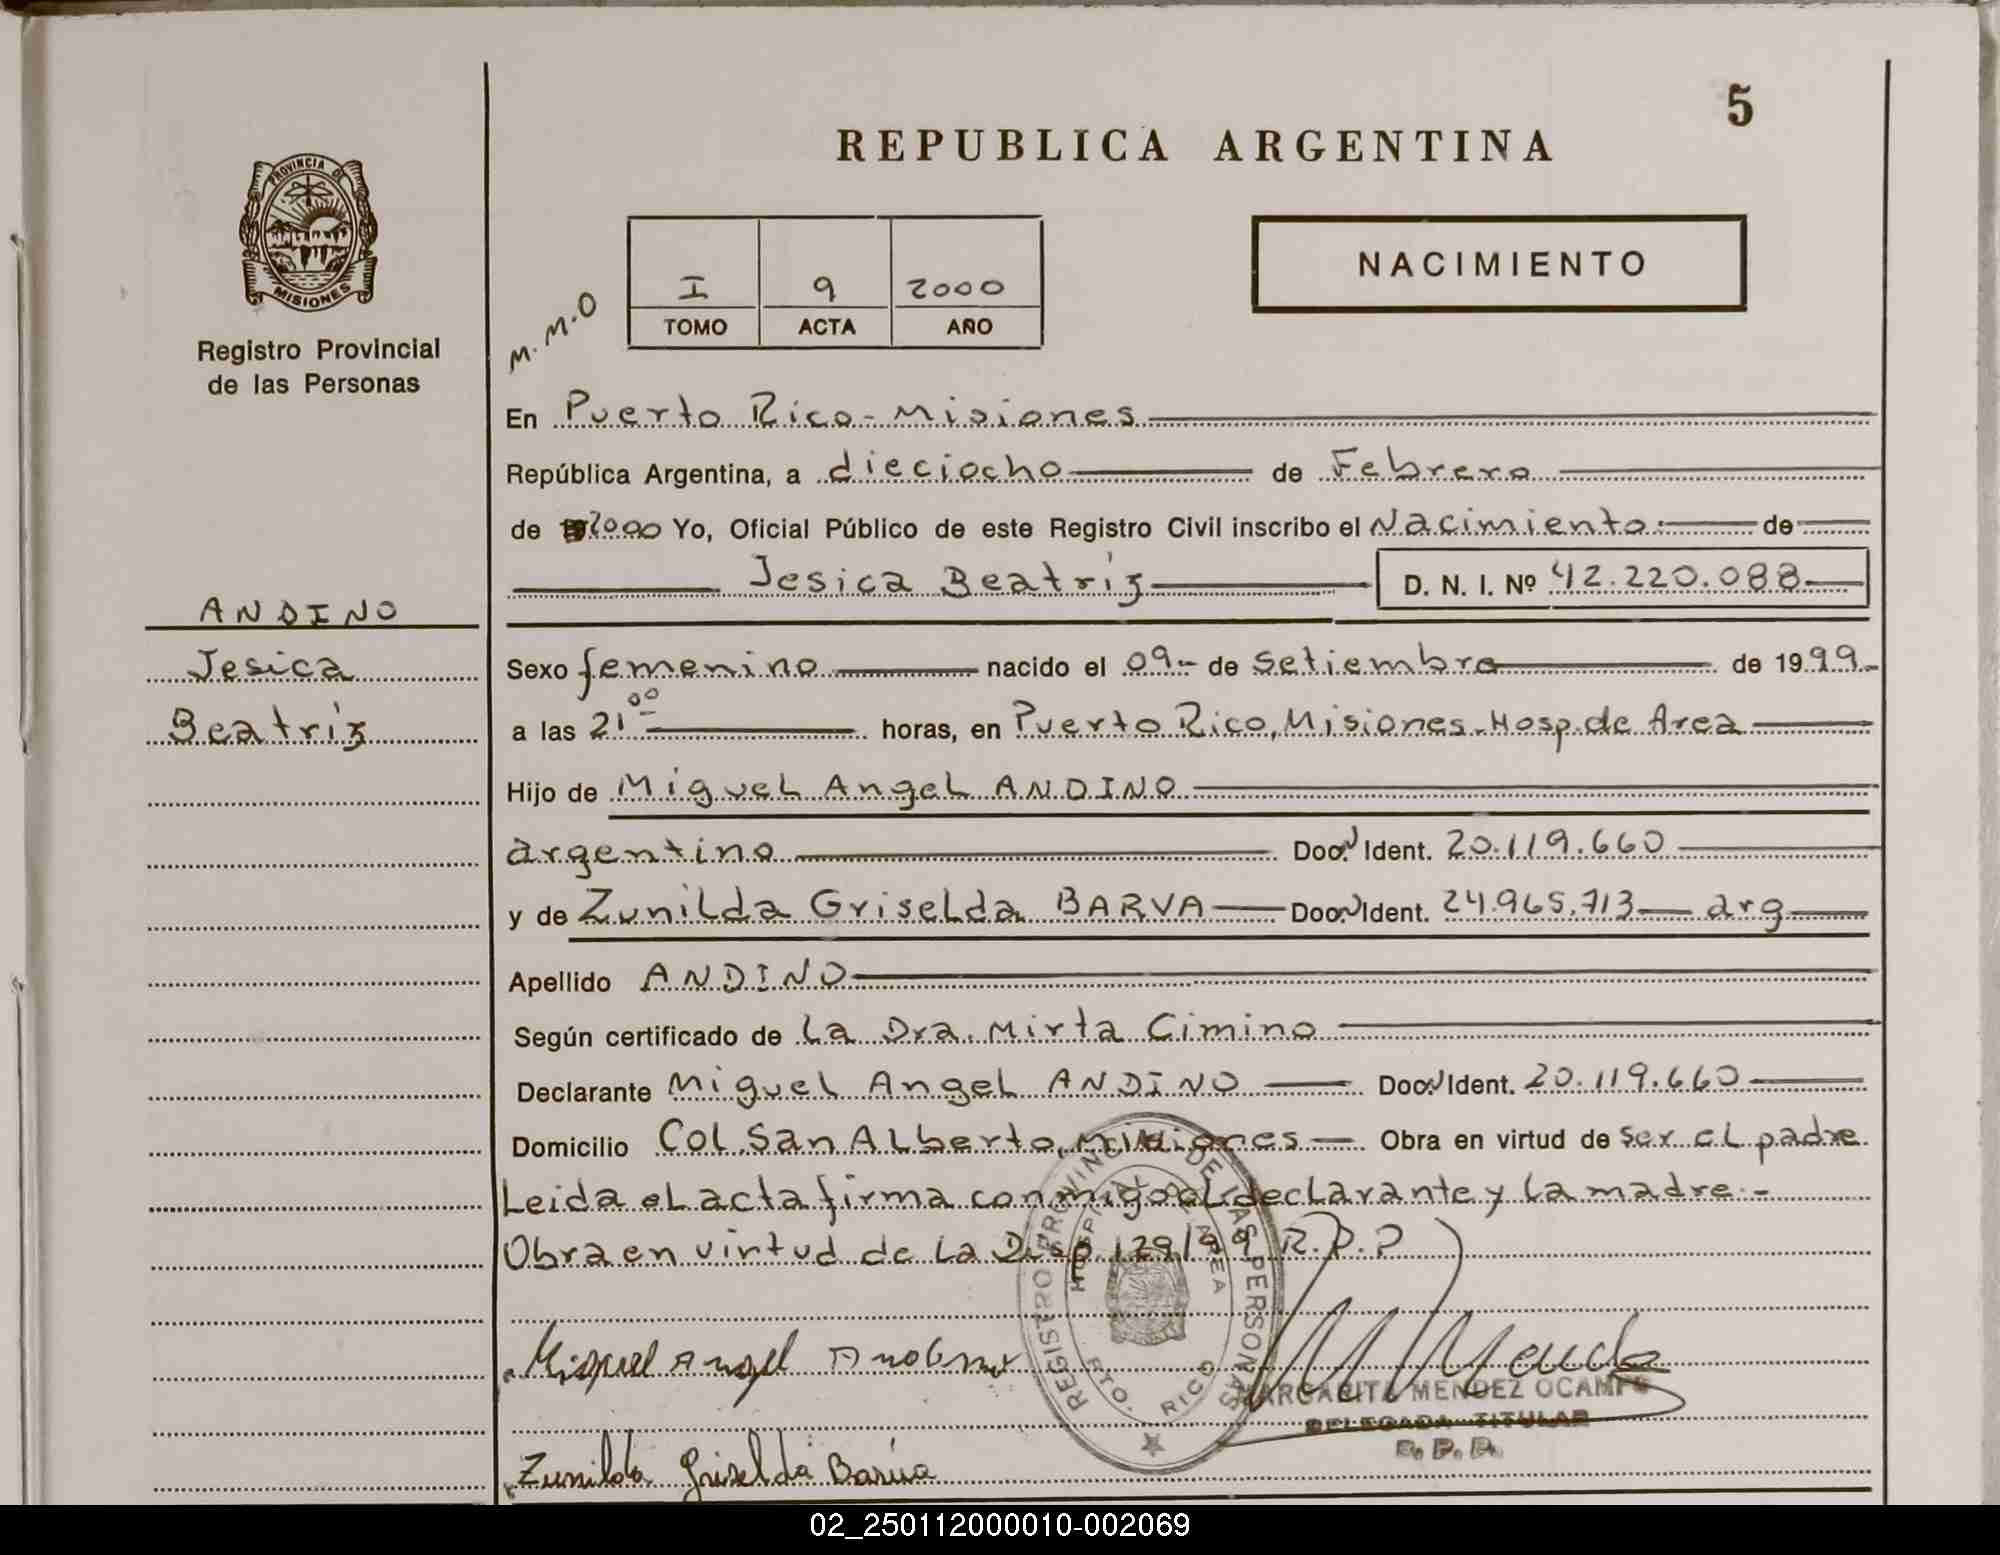 5
REPUBLICA ARGENTINA
PROVINCIA DE
MISIONES
Registro Provincial
de las Personas
NACIMIENTO
M.M.O
I 9 2000
TOMO ACTA AÑO
En Puerto Rico - Misiones
República Argentina, a dieciocho de Febrero
de 2000 Yo, Oficial Público de este Registro Civil inscribo el Nacimiento de
Jesica Beatriz D. N. I. Nº 42.220.088
ANDINO
Jesica
Beatriz
Sexo femenino nacido el 09- de Setiembre de 1999-
a las 21 00 horas, en Puerto Rico, Misiones - Hosp. de Area
Hijo de Miguel Angel ANDINO
argentino Doc. Ident. 20.119.660
y de Zunilda Griselda BARUA Doc. Ident. 24.965.713 arg
Apellido ANDINO
Según certificado de La Dra. Mirta Cimino
Declarante Miguel Angel ANDINO Doc. Ident. 20.119.660
Domicilio Col. San Alberto, Misiones Obra en virtud de ser el padre
Leida el acta firma conmigo el declarante y la madre.-
Obra en virtud de la Disp 129/99 R.P.P
REGISTRO PROVINCIAL DE LAS PERSONAS
HOSPITAL DE AREA
PTO. RICO
Miguel Angel Andino
MARGARITA MENDEZ OCAMPO
DELEGADA TITULAR
R. P. P.
Zunilda Griselda Barúa
02_250112000010-002069